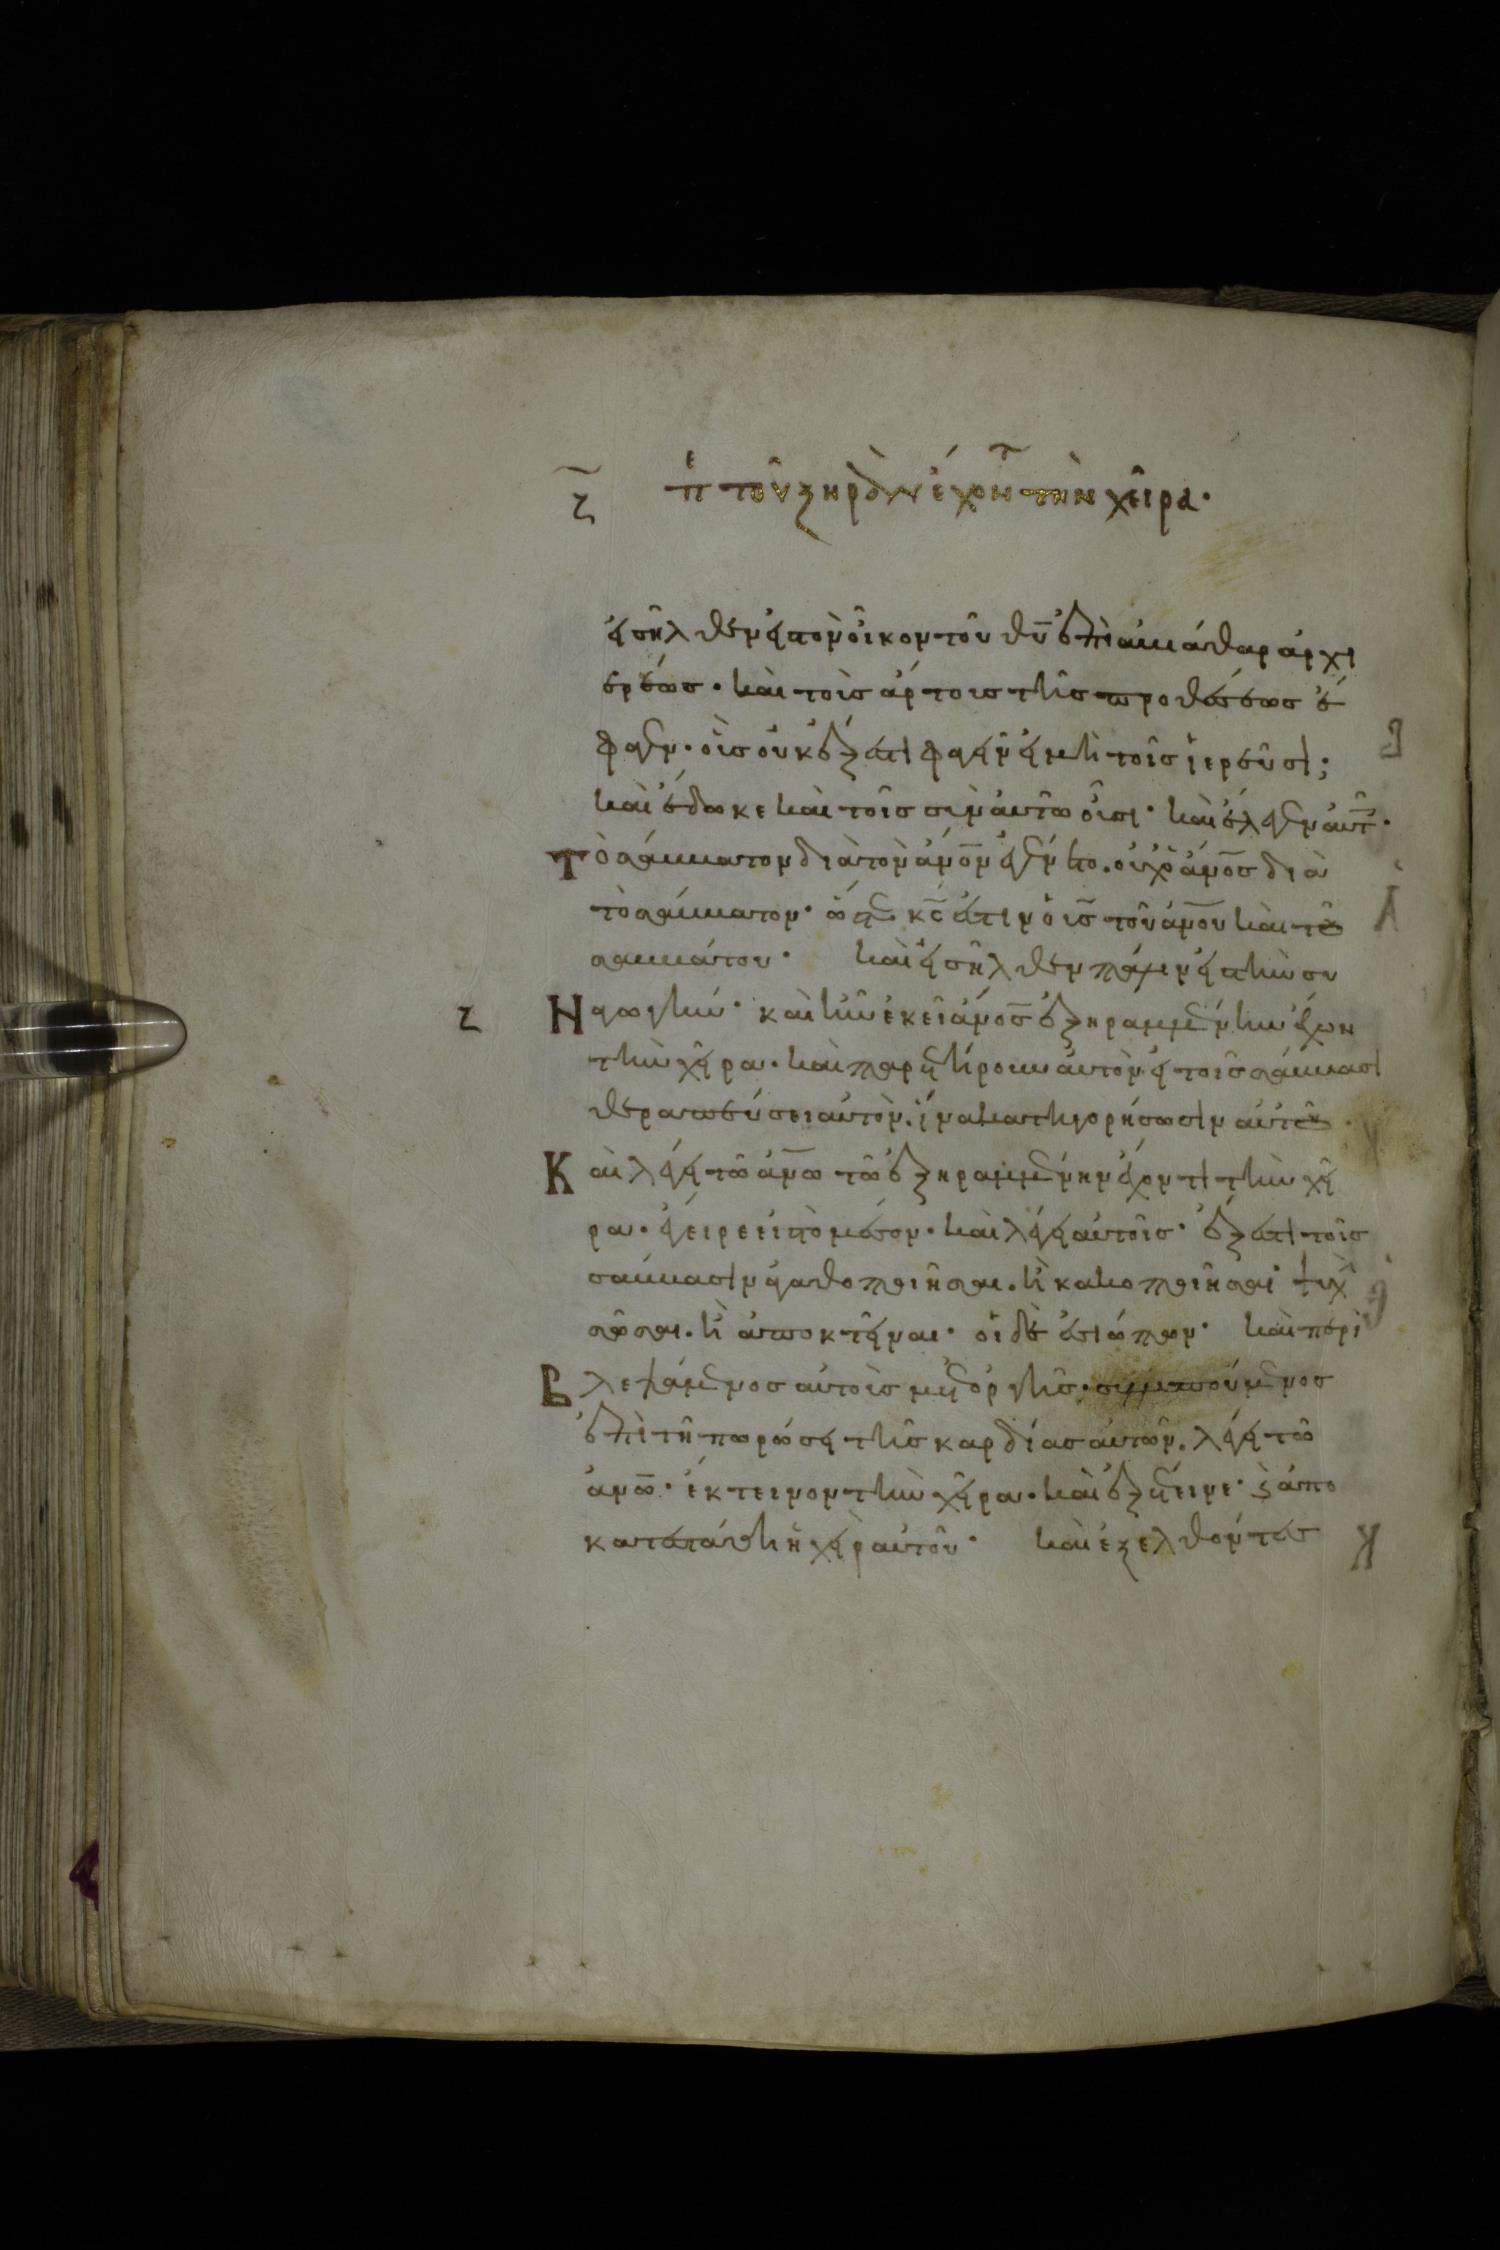 ζ πε τοῦ ξηρὰν ἔχοντ τὴν χεῖρα·
εἰσῆλθεν εἰς τὸν οἶκον τοῦ θῡ ἐπὶ ἀβιάθαρ ἀρχι
ερέως· καὶ τοὺς ἄρτους τῆς προθέσεως ἔ
φαγεν· οὓς οὐκ ἔξεστι φαγεῖν εἰ μὴ τοῖς ἱερεῦσι;
καὶ ἔδωκε καὶ τοῖς σὺν αὐτῶ οὖσι· καὶ ἔλεγεν αὐτ·
Τὸ σάββατον διὰ τὸν ἄνο̄ν ἐγένετο· οὐχ ὁ ἄνο̄ς διὰ
τὸ σάββατον· ὥστε κς̄ ἐστιν ὁ υἱς̄ τοῦ ἀνο̄υ καὶ τοῦ
σαββάτου· καὶ εἰσῆλθεν πάλιν εἰς τὴν συ
ζ Ναγωγήν· καὶ ἦν ἐκεῖ ἄνο̄ς ἐξηραμμένην ἔχων
τὴν χεῖρα· καὶ παρετήρουν αὐτὸν εἰ τοῖς σάββασι
θεραπεύσει αὐτὸν· ἵνα κατηγορήσωσιν αὐτοῦ·
Καὶ λέγει τῶ ἀνω̄ τῶ ἐξηραμμένην ἔχοντι τὴν χεῖ
ρα· ἔγειρε εἰς τὸ μέσον· καὶ λέγει αὐτοῖς· ἔξεστι τοῖς
σάββασιν ἀγαθοποιῆσαι· ἢ κακοποιῆσαι· ψυχὴ
σῶσαι· ἢ ἀποκτεῖναι· οἱ δὲ ἐσιώπων· καὶ περι
Βλεψάμενος αὐτοὺς μετ ὀργῆς· συλλυπούμενος
ἐπὶ τῆ πωρώσει τῆς καρδίας αὐτῶν· λέγει τῶ
ἀνω̄· ἔκτεινον τὴν χεῖρα· καὶ ἐξέτεινε· ϗ ἀπο
κατεστάθη ἡ χεὶρ αὐτοῦ· καὶ ἐξελθόντες